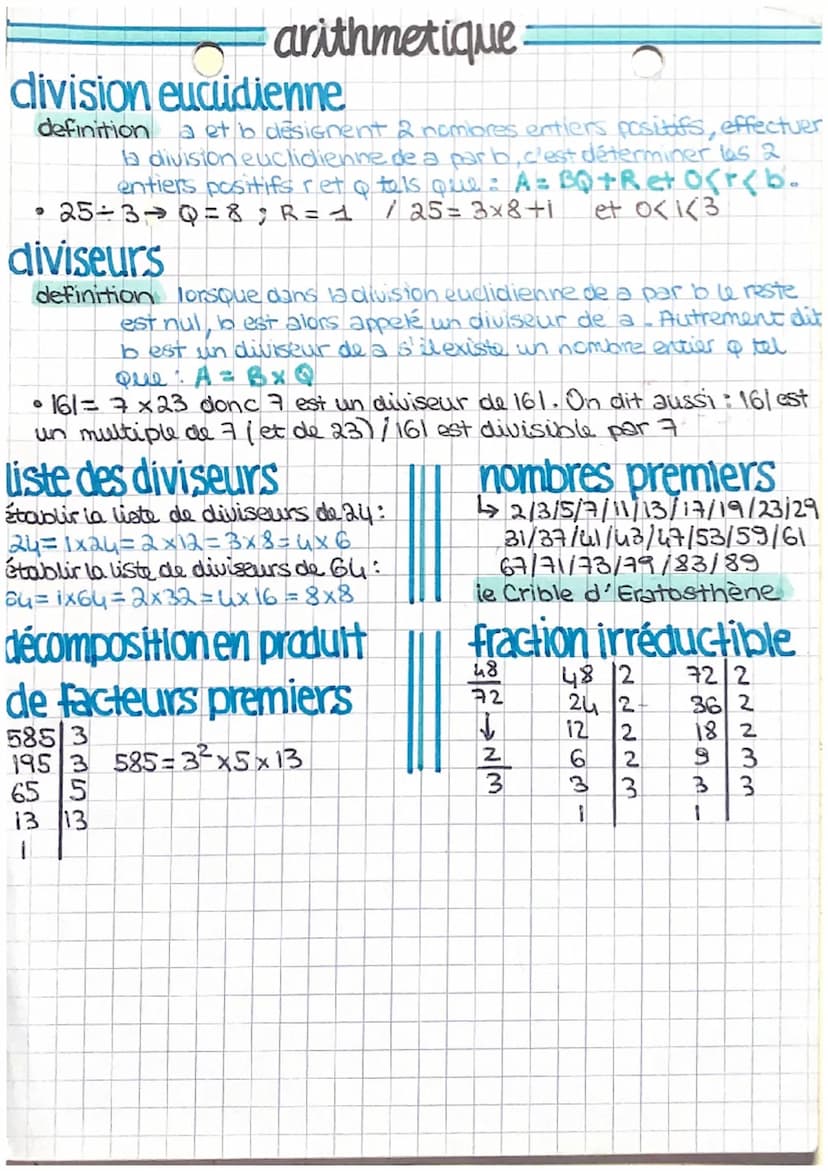 arithmetique
division euclidienne
definition a et b désignent 2 nombres entiers positifs, effectuer
la division euclidienne de a par b, c'est déterminer les 2
entiers positifs r et q tels que : A = BQ + R et 0<r<b.
• 25÷3→ Q = 8 ; R = 1 / 25 = 3×8+1 et 0<1<3
diviseurs
definition lorsque dans la division euclidienne de a par b le reste
est nul, b est alors appelé un diviseur de a. Autrement dit
b est un diviseur de a s'il existe un nombre entier q tel
que : A = B x Q
• 161 = 7 × 23 donc 7 est un diviseur de 161. On dit aussi : 161 est
un multiple de 7 (et de 23) / 161 est divisible par 7
liste des diviseurs
établir la liste de diviseurs de 24 :
24 = 1x24 = 2 x12 = 3x8 = 4x6
établir la liste de diviseurs de 64 :
64 = 1x64 = 2x32 = 4x16 = 8x8
nombres premiers
↳ 2/3/5/7/11/13/17/19/23/29
31/37/41/43/47/53/59/61
67/71/73/79/83/89
le Crible d'Eratosthène
décomposition en produit
de facteurs premiers
585 3
195 3 585 = 3² x 5 x 13
65 5
13 13
1
fraction irréductible
48/72 ↓ 2/3
48 2 72 2
24 2 36 2
12 2 18 2
6 2 9 3
3 3 3 3
1 1